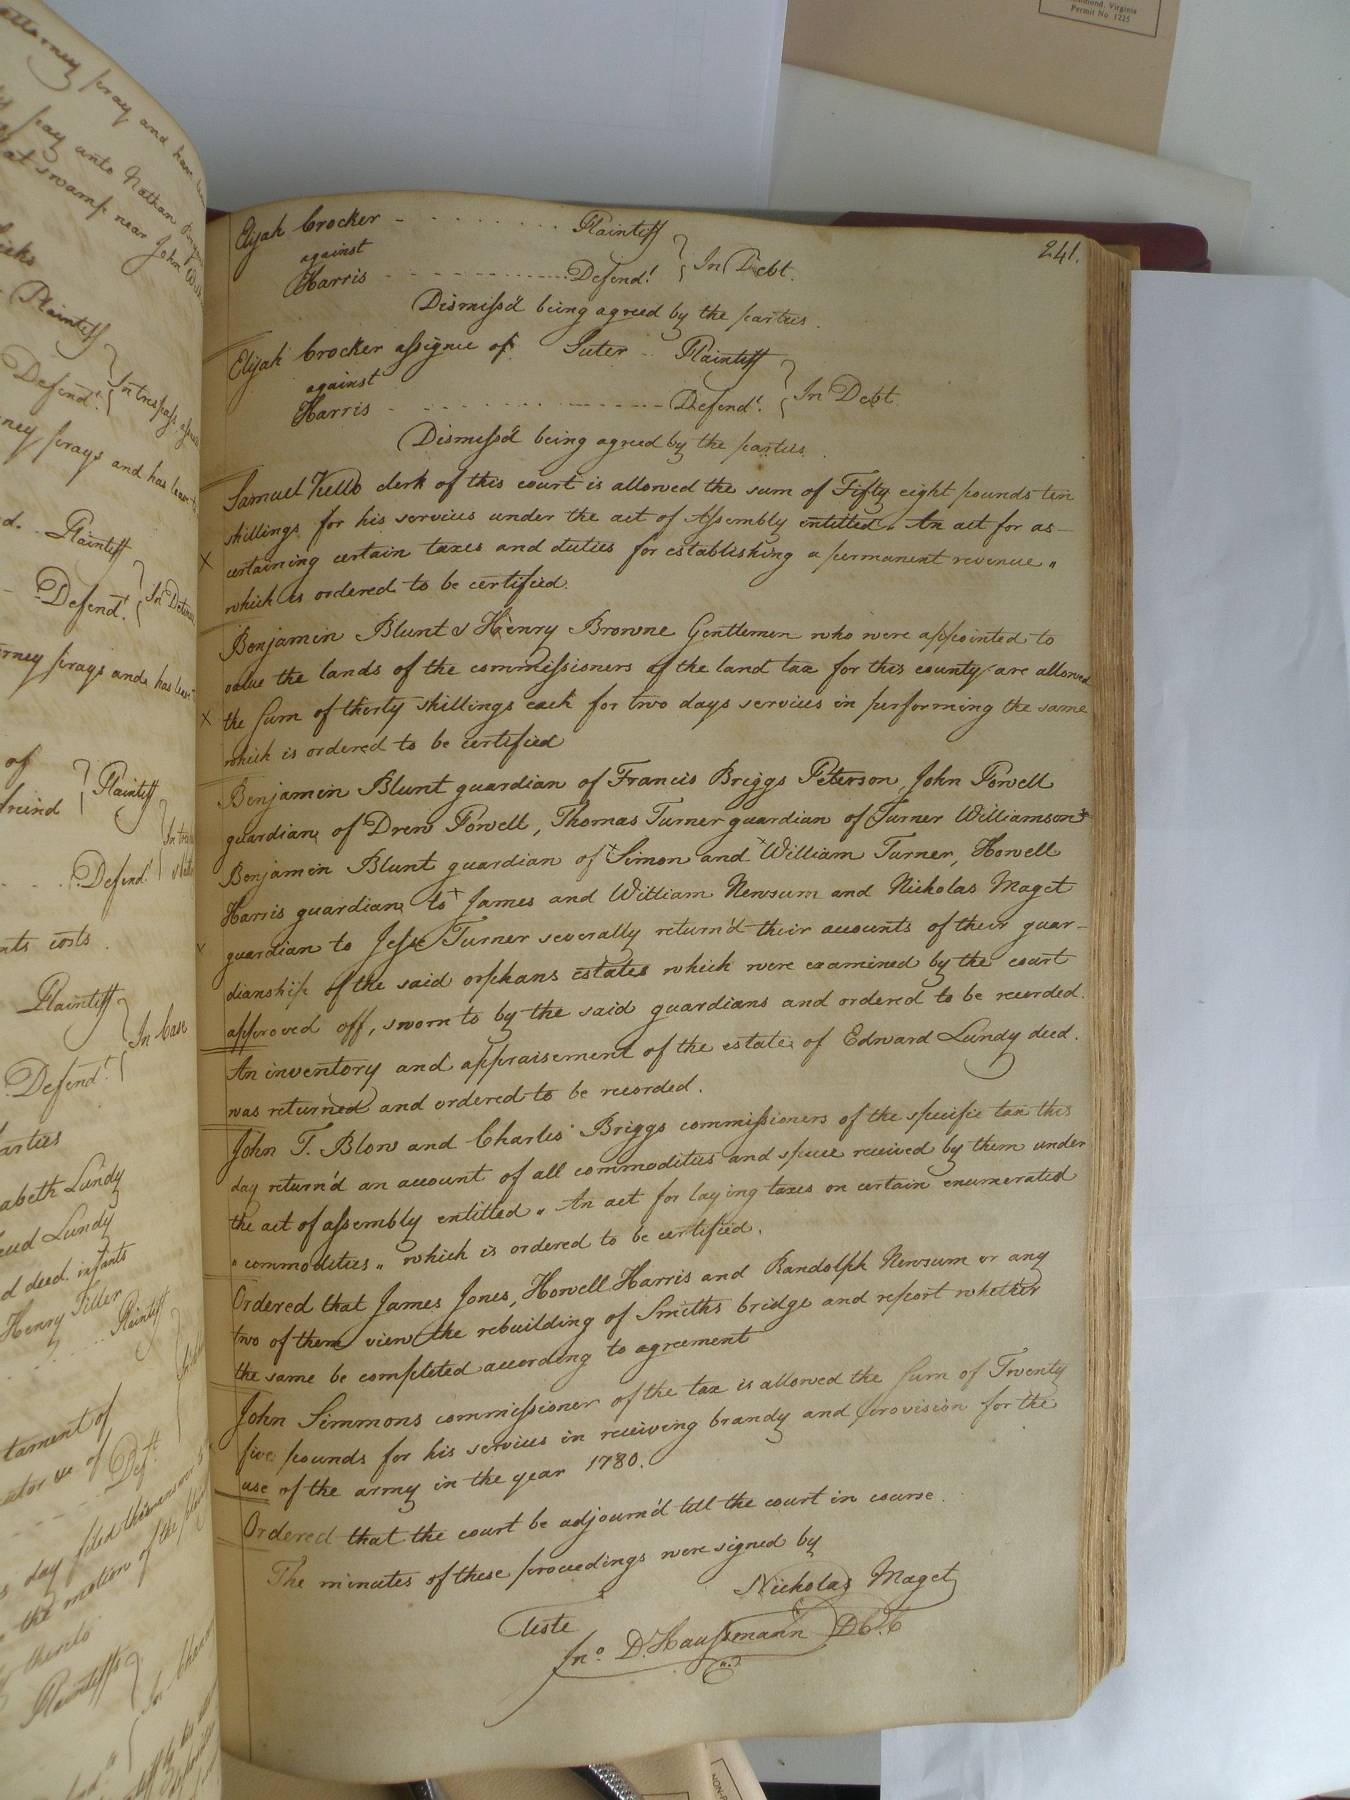 attorney pray and have
pay unto Nathan
at swamp near John
Plaintiff
Defendt. In trespass
ney prays and has leave
Plaintiff
Defendt.
rney prays and has leave
of
Plaintiff
Defend
nts costs
Plaintiff
In Case
Defendt.
arties
abeth Lundy
Lundy
d deced. infants
Henry Tiller
Plaintiff
tament of
of
Deft.
day filed
the motion of the
thereto
Plaintiffs
ond, Virginia
Permit No. 1225
241.
Elijah Crocker - - - - - - - Plaintiff
against
Harris - - - - - - - - - - Defendt. In Debt.
Dismiss'd being agreed by the parties.
Elijah Crocker assignee of Suter - - Plaintiff
against
Harris - - - - - - - - - - Defendt. In Debt
Dismiss'd being agreed by the parties.
Samuel Kello clerk of this court is allowed the sum of Fifty eight pounds ten
shillings for his services under the act of Assembly entitled " An act for as-
certaining certain taxes and duties for establishing a permanent revenue "
which is ordered to be certified.
Benjamin Blunt & Henry Browne Gentlemen who were appointed to
value the lands of the commissioners of the land tax for this county are allowed
the sum of thirty shillings each for two days services in performing the same
which is ordered to be certified
Benjamin Blunt guardian of Francis Briggs Peterson, John Powell
guardian of Drew Powell, Thomas Turner guardian of Turner Williamson
Benjamin Blunt guardian of Simon and William Turner, Howell
Harris guardian to James and William Newsum and Nicholas Maget
guardian to Jesse Turner severally return'd their accounts of their guar-
dianship of the said orphans estates which were examined by the court
approved off, sworn to by the said guardians and ordered to be recorded.
An inventory and appraisement of the estate of Edward Lundy deced.
was returned and ordered to be recorded.
John T. Blow and Charles Briggs commissioners of the specific tax this
day return'd an account of all commodities and specie received by them under
the act of assembly entitled " An act for laying taxes on certain enumerated
" commodities " which is ordered to be certified.
Ordered that James Jones, Howell Harris and Randolph Newsum or any
two of them view the rebuilding of Smiths bridge and report whether
the same be completed according to agreement
John Simmons commissioner of the tax is allowed the sum of Twenty
five pounds for his services in receiving brandy and provision for the
use of the army in the year 1780.
Ordered that the court be adjourn'd till the court in course.
The minutes of these proceedings were signed by
Nicholas Maget
Teste
Jno. D. Haussmann D C. C